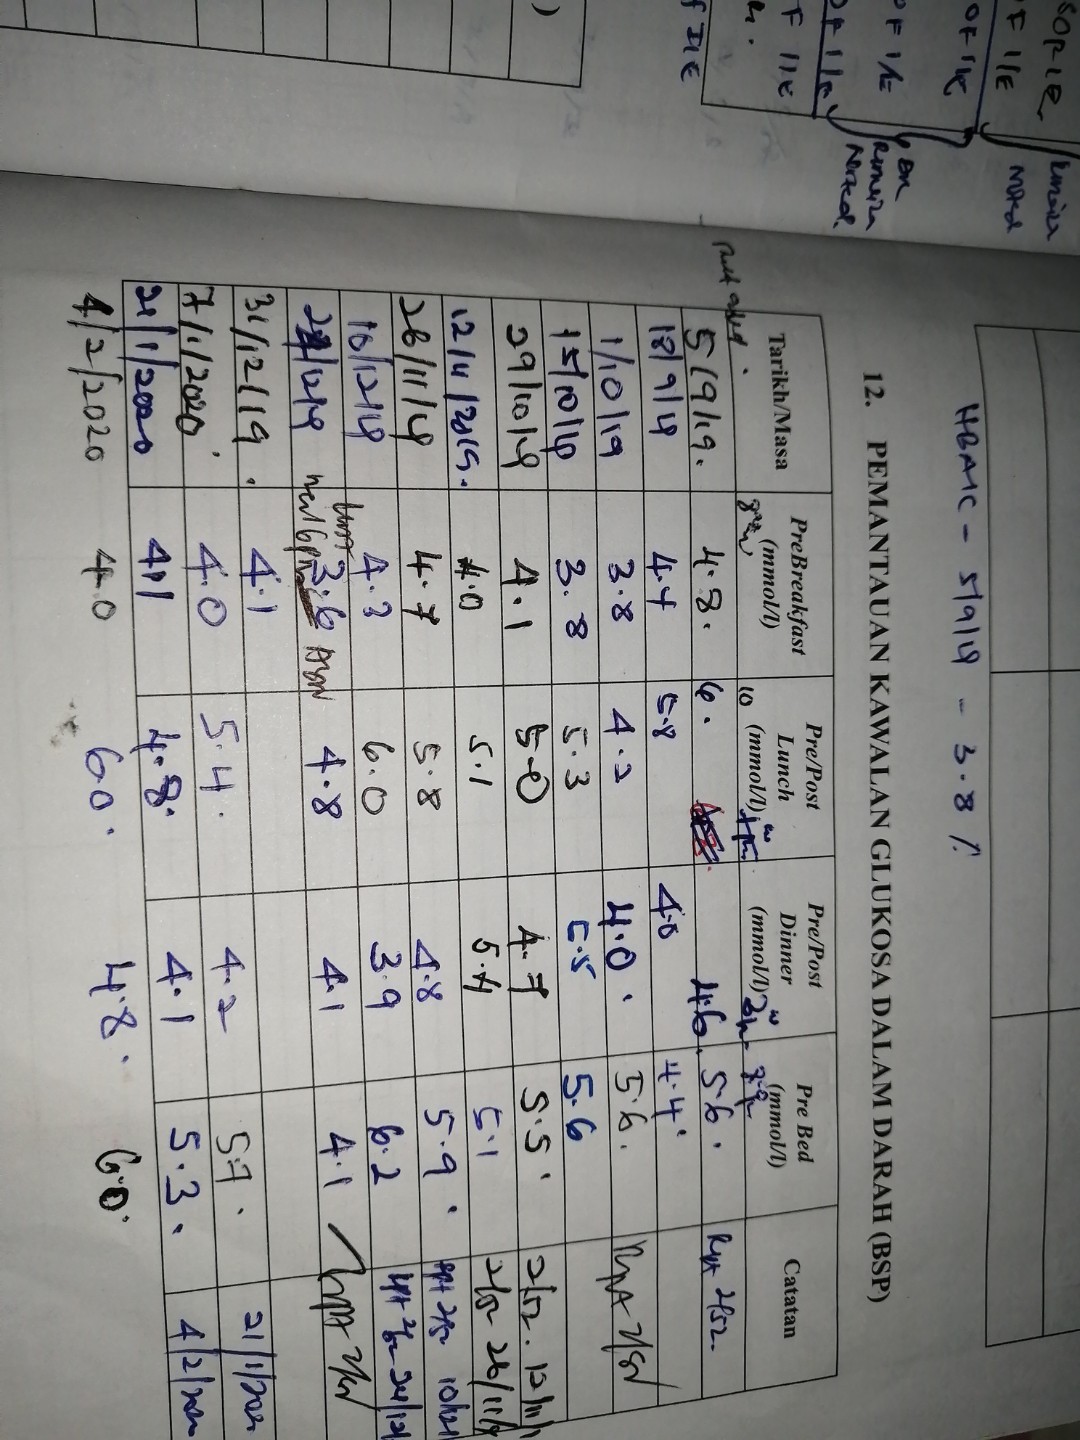 SOPIE
OF I/E
OF I/E
OF I/E
OF I/E
OF I/E
of I/E
Noted
HBA1C - 5/9/19 - 3.8 %
12. PEMANTAUAN KAWALAN GLUKOSA DALAM DARAH (BSP)
Tarikh/Masa PreBreakfast (mmol/l) Pre/Post Lunch (mmol/l) Pre/Post Dinner (mmol/l) Pre Bed (mmol/l) Catatan
5/9/19. 4.8. 6. 4.6. 5.6. Rpt 2/52.
18/9/19 4.4 5.8 4.0 4.4
1/10/19 3.8 4.2 4.0. 5.6. 2/52
15/10/19 3.8 5.3 5.5 5.6
29/10/19 4.1 5.0 4.7 5.5. 2/52. 12/11/1
12/11/2019. 4.0 5.1 5.4 5.1 2/52 26/11/
26/11/19 4.7 5.8 4.8 5.9. 2/52 10/12/
10/12/19 4.3 6.0 3.9 6.2 2/52 24/12/
3.6 4.8 4.1 4.1
31/12/19. 4.1
7/1/2020 4.0 5.4. 4.2 21/1/2020
21/1/2020 4.1 4.8. 4.1 5.3. 4/2/2020
4/2/2020 4.0 6.0. 4.8. 6.0.